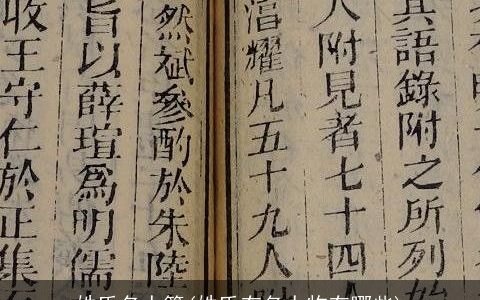 其語錄附之所列始
人附見者七十四人
湻耀凡五十九人附
然斌參酌於朱陸
旨以薛瑄爲明儒
收王守仁於正集
姓氏名人(姓氏有名人物有哪些)